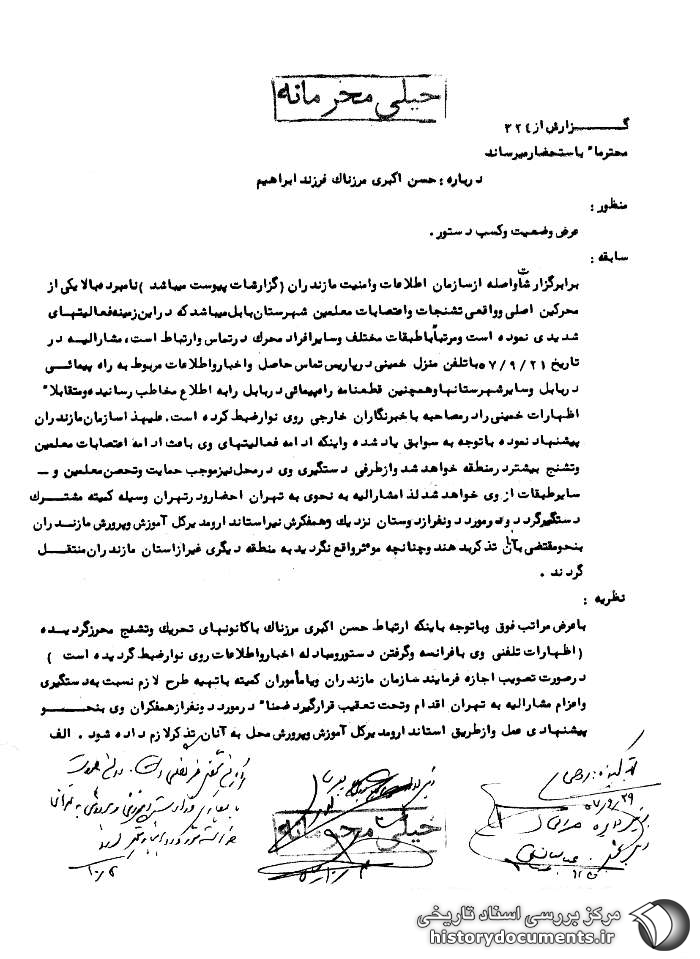 خیلی محرمانه
گـــــزارش از ۳۲۴
محترما" باستحضار میرساند
درباره : حسن اکبری مرزناک فرزند ابراهیم
منظور :
عرض وضعیت وکسب دستور .
سابقه :
برابر گزارشات واصله از سازمان اطلاعات وامنیت مازندران ( گزارشات پیوست میباشد ) نامبرده بالا یکی از
محرکین اصلی وواقعی تشنجات واعتصابات معلمین شهرستان بابل میباشد که دراین زمینه فعالیتهای
شدیدی نموده است ومرتبا" باطبقات مختلف وسایر افراد محرک درتماس وارتباط است ، مشارالیه در
تاریخ ۵۷/۹/۲۱ با تلفن منزل خمینی درپاریس تماس حاصل واخبار واطلاعات مربوط به راه پیمائی
دربابل وسایر شهرستانها وهمچنین قطعنامه راهپیمائی دربابل رابه اطلاع مخاطب رسانیده ومتقابلا"
اظهارات خمینی رادر مصاحبه باخبرنگاران خارجی روی نوار ضبط کرده است . علیهذا سازمان مازندران
پیشنهاد نموده باتوجه به سوابق یاد شده واینکه ادامه فعالیتهای وی باعث ادامه اعتصابات معلمین
وتشنج بیشتر درمنطقه خواهد شد وازطرفی دستگیری وی درمحل نیز موجب حمایت وتحصن معلمین و ـ
سایر طبقات از وی خواهد شد لذا مشارالیه به نحوی به تهران احضار ودر تهران وسیله کمیته مشترک
دستگیر گردد ودرمورد دونفر از دوستان نزدیک وهمفکرش نیز استاندار ومدیرکل آموزش وپرورش مازندران
بنحومقتضی بآنان تذکر بدهند وچنانچه موثر واقع نگردید به منطقه دیگری غیر از استان مازندران منتقل
گردند .
نظریه :
باعرض مراتب فوق وباتوجه باینکه ارتباط حسن اکبری مرزناک باکانونهای تحریک وتشنج محرز گردیــده
( اظهارات تلفنی وی بافرانسه وگرفتن دستور ومبادله اخبار واطلاعات روی نوار ضبط گردیده است )
درصورت تصویب اجازه فرمایند سازمان مازندران ویا مأموران کمیته باتهیه طرح لازم نسبت به دستگیری
واعزام مشارالیه به تهران اقدام وتحت تعقیب قرارگیرد ضمنا" درمورد دونفر از همفکران وی بنحـــو
پیشنهادی عمل وازطریق استاندار ومدیرکل آموزش وپرورش محل به آنان تذکر لازم داده شود . الف
۵۷/۹/۲۹
خیلی محرمانه
مرکز بررسی اسناد تاریخی
historydocuments.ir